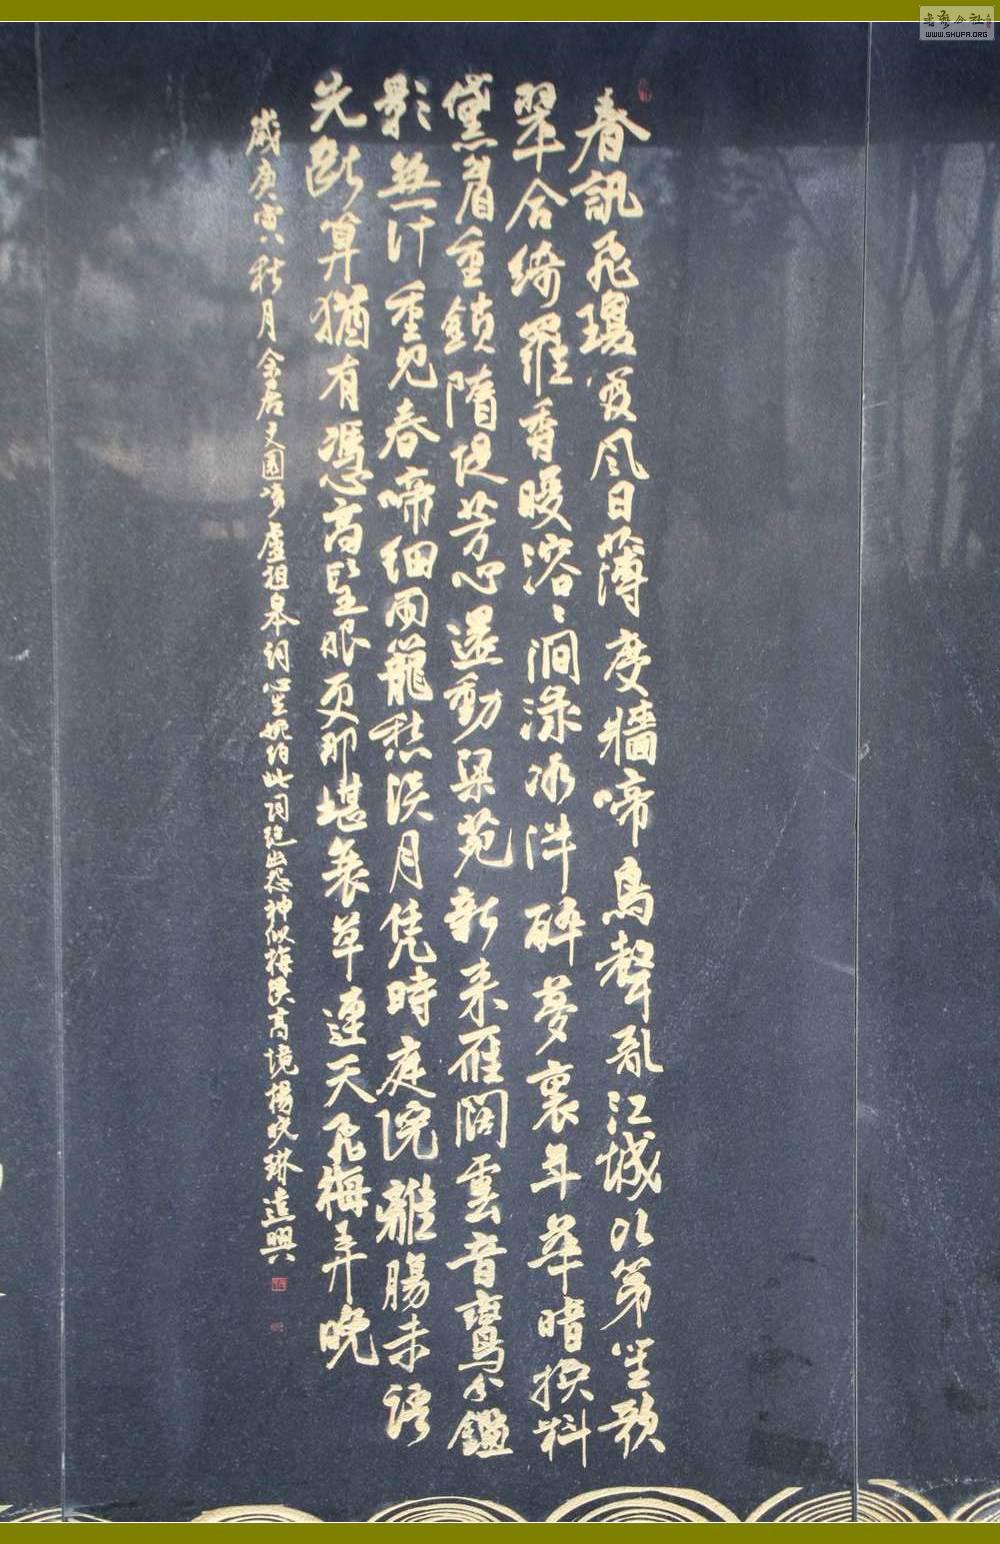 春訊飛瓊管風日薄度牆啼鳥聲亂江城次第笙歌
翠合綺羅香暖溶溶澗淥冰泮醉夢裏年華暗換料
黛眉重鎖隋堤芳心還動梁苑新来雁闊雲音鸞分鑑
影無計重見春啼細雨籠愁淡月凭時庭院離腸未語
先斷算猶有憑高望眼更那堪衰草連天飛梅弄晚
歲庚寅八秋月余居又園盧祖皋詞心生婉約此詞神似梅溪高境楊曉琳遣興
WWW.SHUFA.ORG